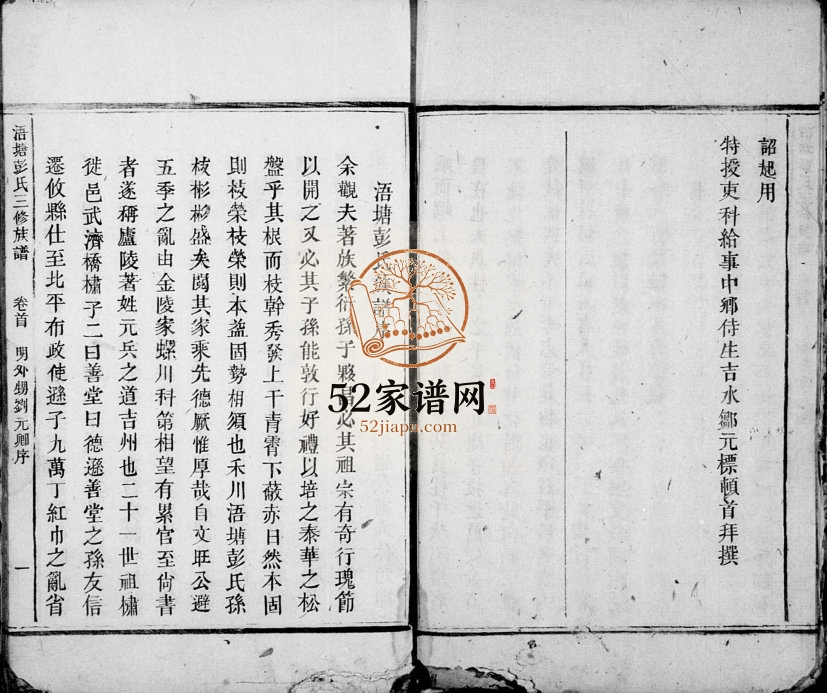 詔起用
特授吏科給事中鄉侍生吉水鄒元標頓首拜撰
浯塘彭氏
余觀夫著族繁衍孫子夥者必其祖宗有奇行瑰節
以開之又必其子孫能敦行好禮以培之泰華之松
盤乎其根而枝幹秀發上干青霄下蔽赤日然本固
則枝榮枝榮則本益固勢相須也禾川浯塘彭氏孫
枝彬彬盛矣閱其家乘先德厥惟厚哉自文旺公避
五季之亂由金陵家螺川科第相望有累官至尙書
者遂稱廬陵著姓元兵之道吉州也二十一世祖橚
徙邑武濟橋橚子二曰善堂曰德遜善堂之孫友信
遷攸縣仕至北平布政使遜子九萬丁紅巾之亂省
浯塘彭氏三修族譜
卷首
明外甥劉元卿序
一
52家谱网
52jiapu.com